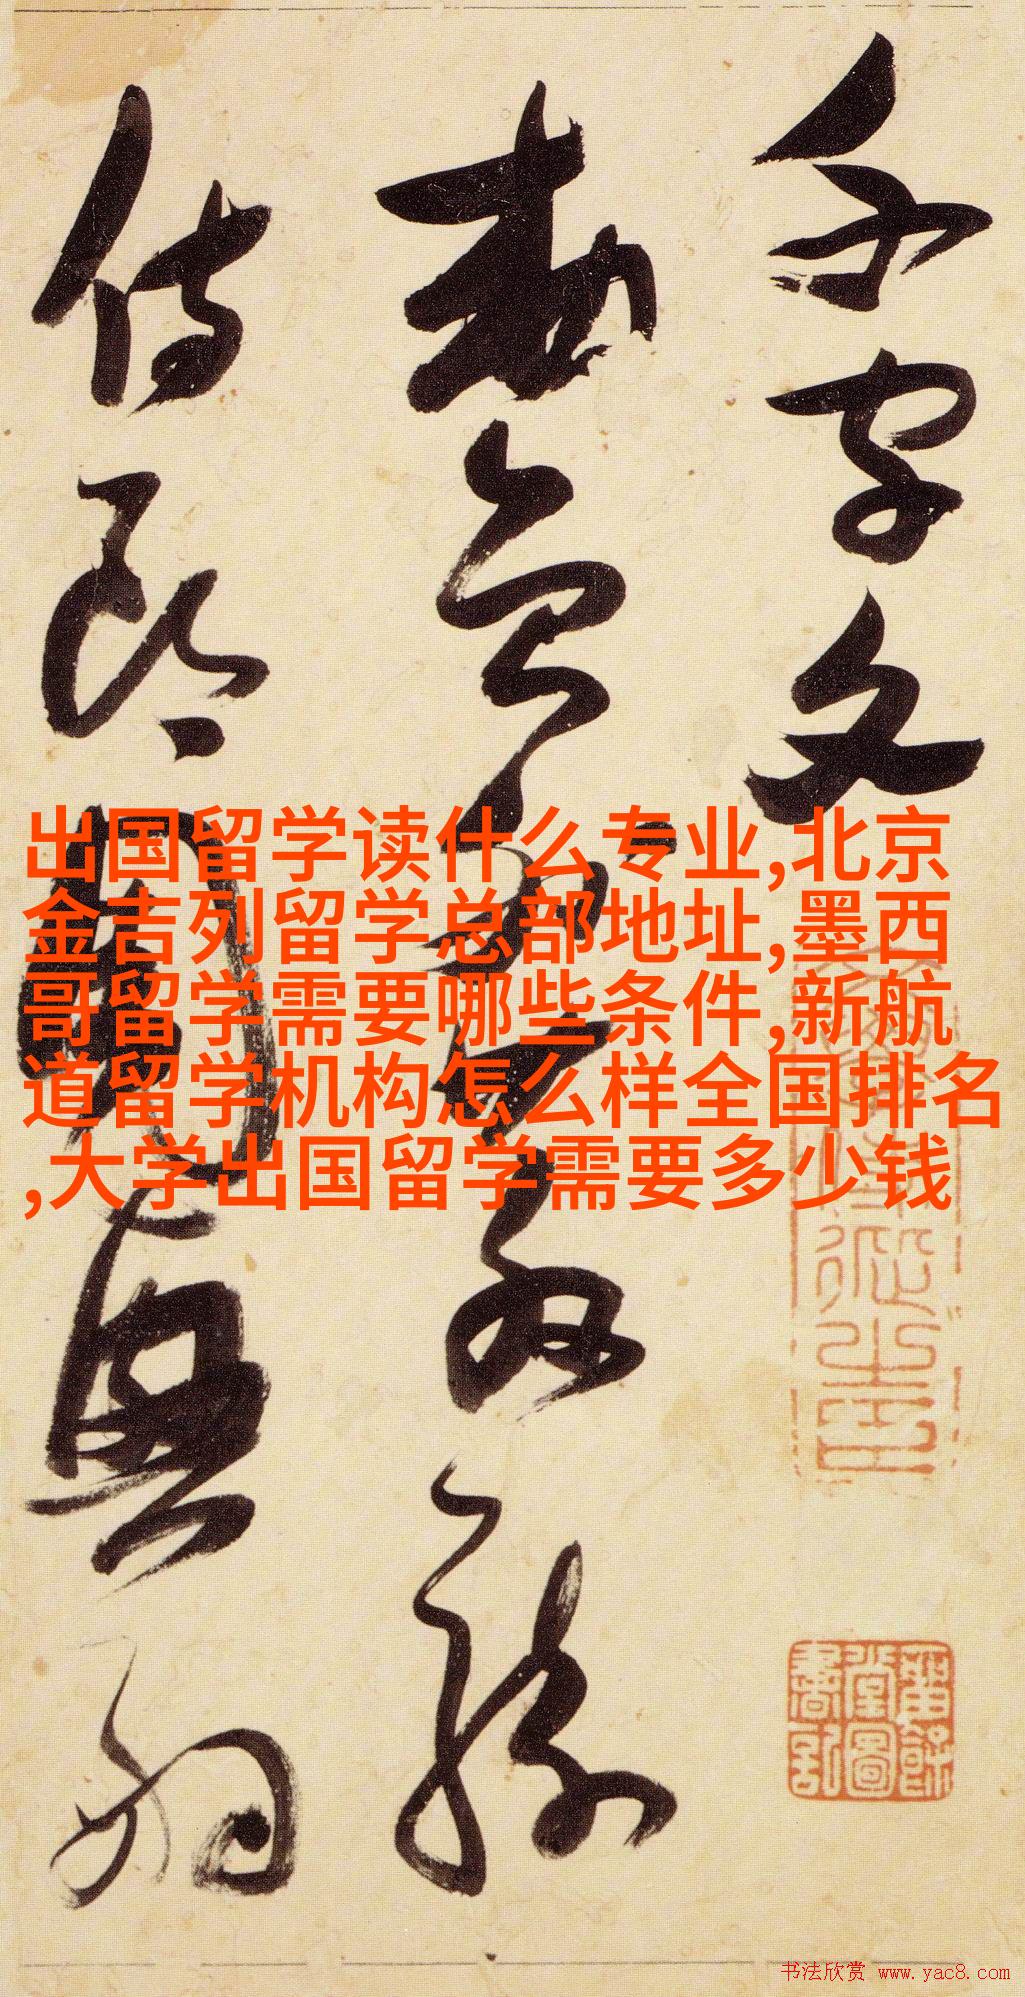 千字文
勅員外散騎
侍郎周興嗣
出国留学读什么专业,北京
金吉列留学总部地址,墨西
哥留学需要哪些条件,新航
道留学机构怎么样全国排名
,大学出国留学需要多少钱
书法欣赏 www.yac8.com